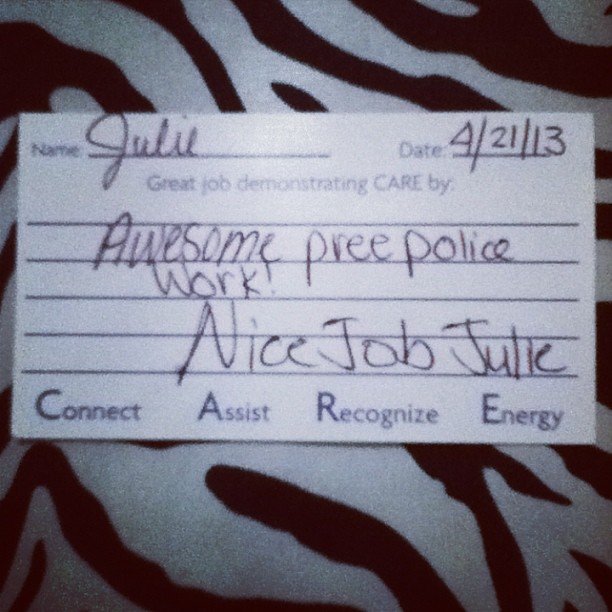 Name: Julie Date: 4/21/13
Great job demonstrating CARE by:
Awesome pree police
work!
Nice Job Julie
Connect Assist Recognize Energy